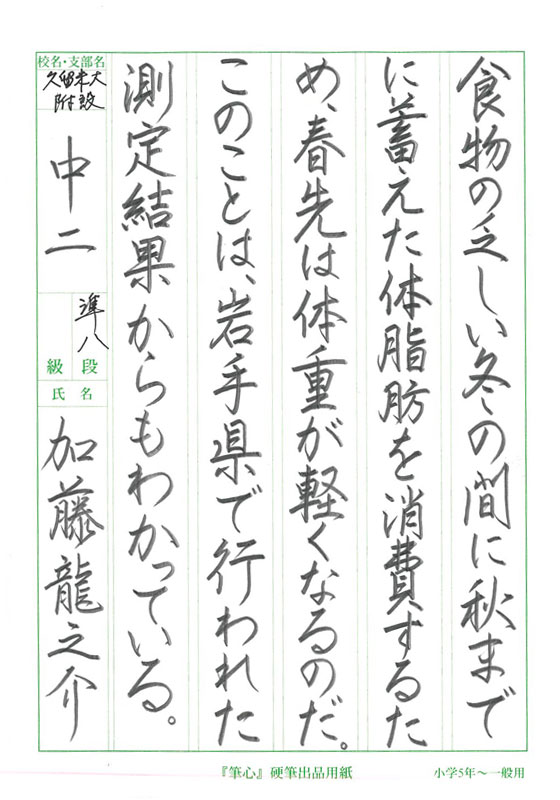 食物の乏しい冬の間に秋まで
に蓄えた体脂肪を消費するた
め、春先は体重が軽くなるのだ。
このことは、岩手県で行われた
測定結果からもわかっている。
校名・支部名
久留米大
附設
中二
準八
段
級
氏名
加藤龍之介
『筆心』硬筆出品用紙
小学5年〜一般用